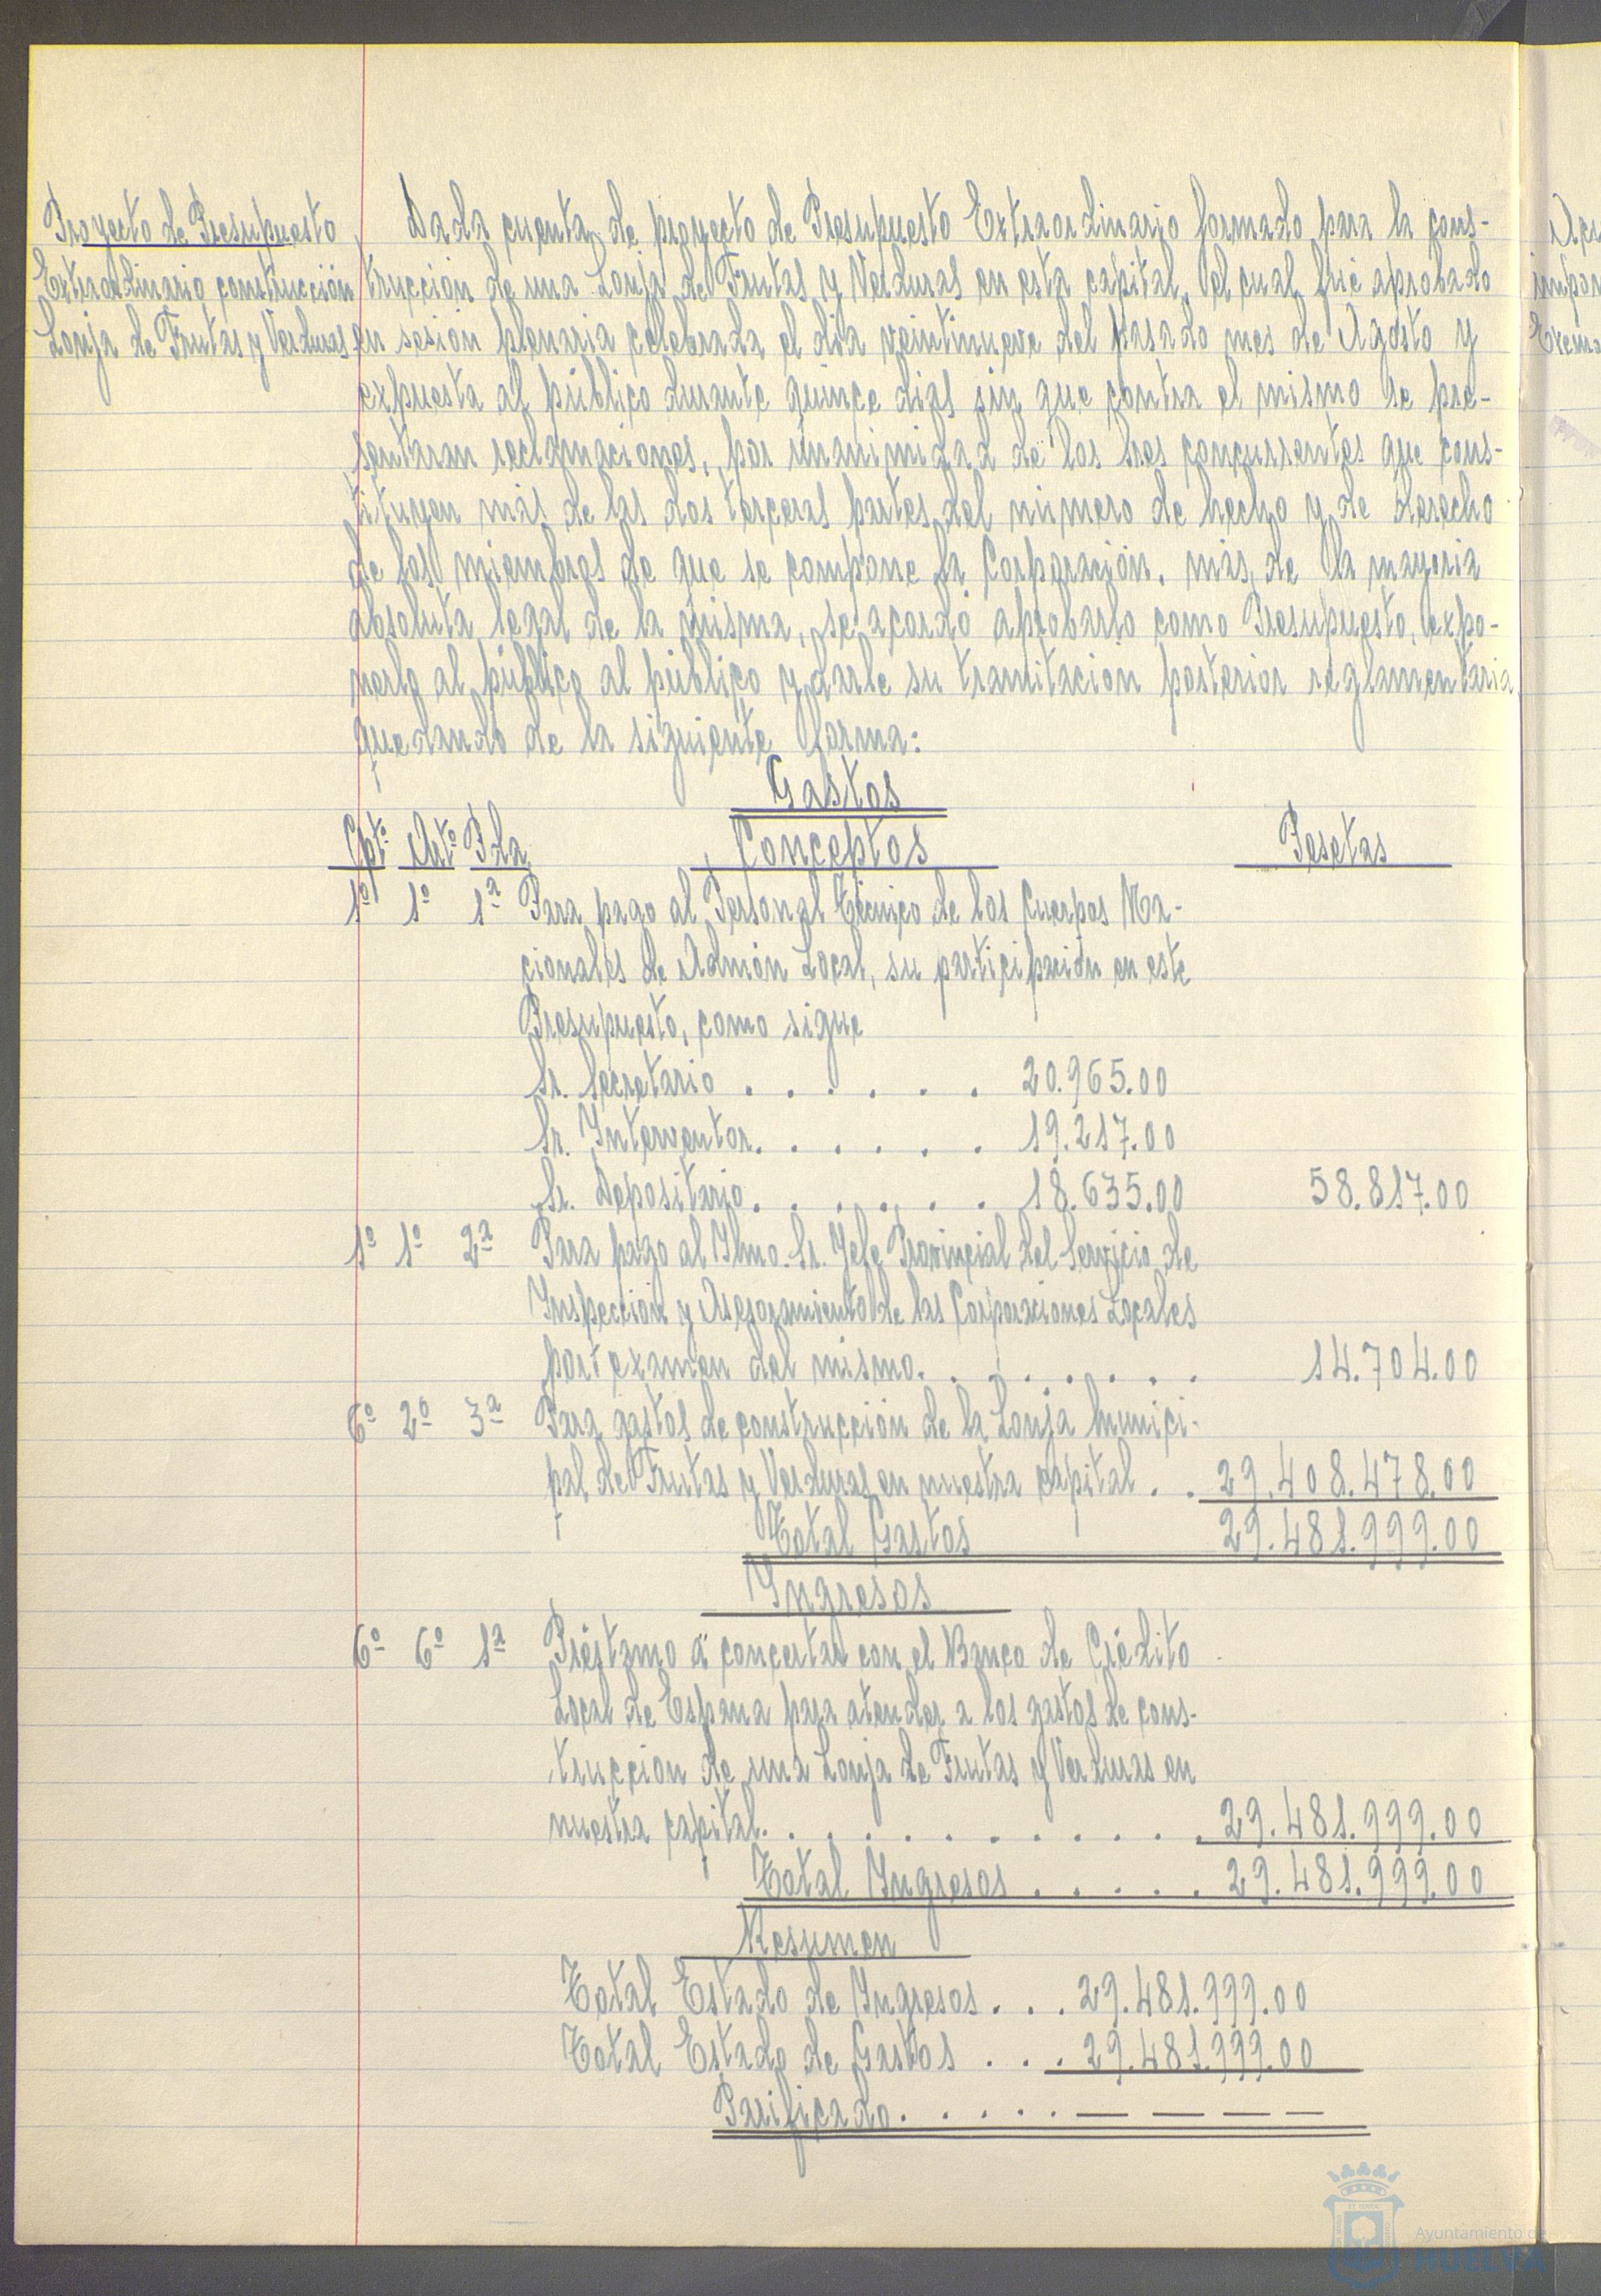 Proyecto de Presupuesto
Extraordinario construcción
Lonja de Frutas y Verduras.
Dada cuenta de proyecto de Presupuesto Extraordinario formado para la cons-
trucción de una Lonja de Frutas y Verduras en esta capital, el cual fué aprobado
en sesión plenaria celebrada el día veintinueve del pasado mes de Agosto y
expuesta al público durante quince dias sin que contra el mismo se pre-
sentaran reclamaciones, por unanimidad de los sres concurrentes que cons-
tituyen más de las dos terceras partes del número de hecho y de derecho
de los miembros de que se compone la Corporación, más de la mayoria
absoluta legal de la misma, se acordó aprobarlo como Presupuesto, expo-
nerlo al público al público y darle su tramitación posterior reglamentaria
quedando de la siguiente forma:
Gastos
Cptº Artº Pda Conceptos Pesetas
1º 1º 1ª Para pago al Personal técnico de los Cuerpos Na-
cionales de Admón Local, su participación en este
Presupuesto, como sigue
Sr. Secretario . . . . . . 20.965.00
Sr. Interventor. . . . . . 19.217.00
Sr. Depositario. . . . . . 18.635.00 58.817.00
1º 1º 2ª Para pago al Ilmo. Sr. Jefe Provincial del Servicio de
Inspección y Asesoramiento de las Corporaciones Locales
por examen del mismo. . . . . . . . 14.704.00
6º 2º 3ª Para gastos de construcción de la Lonja Munici-
pal de Frutas y Verduras en nuestra capital . . 29.408.478.00
Total Gastos 29.481.999.00
Ingresos
6º 6º 1ª Préstamo a concertar con el Banco de Crédito
Local de España para atender a los gastos de cons-
trucción de una Lonja de Frutas y Verduras en
nuestra capital. . . . . . . . . . . . 29.481.999.00
Total Ingresos . . . . . 29.481.999.00
Resumen
Total Estado de Ingresos . . . 29.481.999.00
Total Estado de Gastos . . . 29.481.999.00
Parificado. . . . . . — — — —
Ayuntamiento de
HUELVA